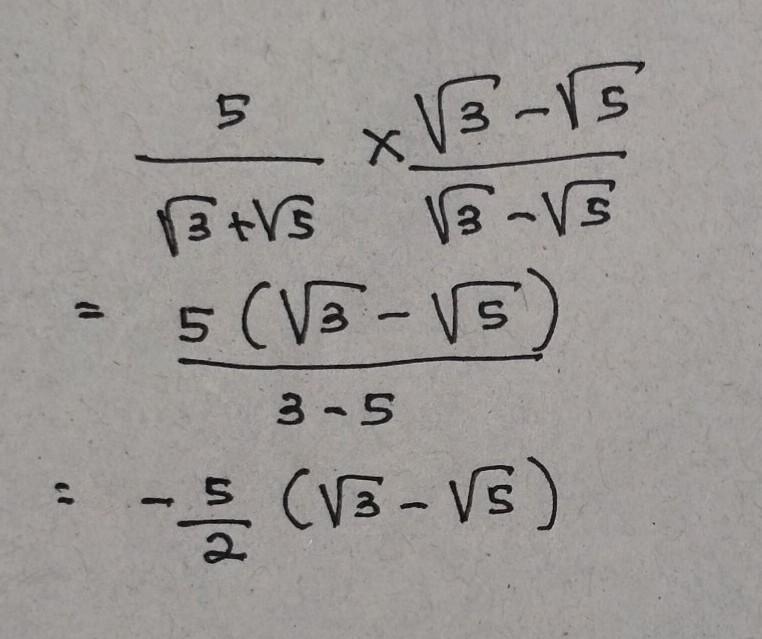 5/(√3+√5) × (√3-√5)/(√3-√5)
= 5(√3-√5)/(3-5)
= -5/2 (√3-√5)